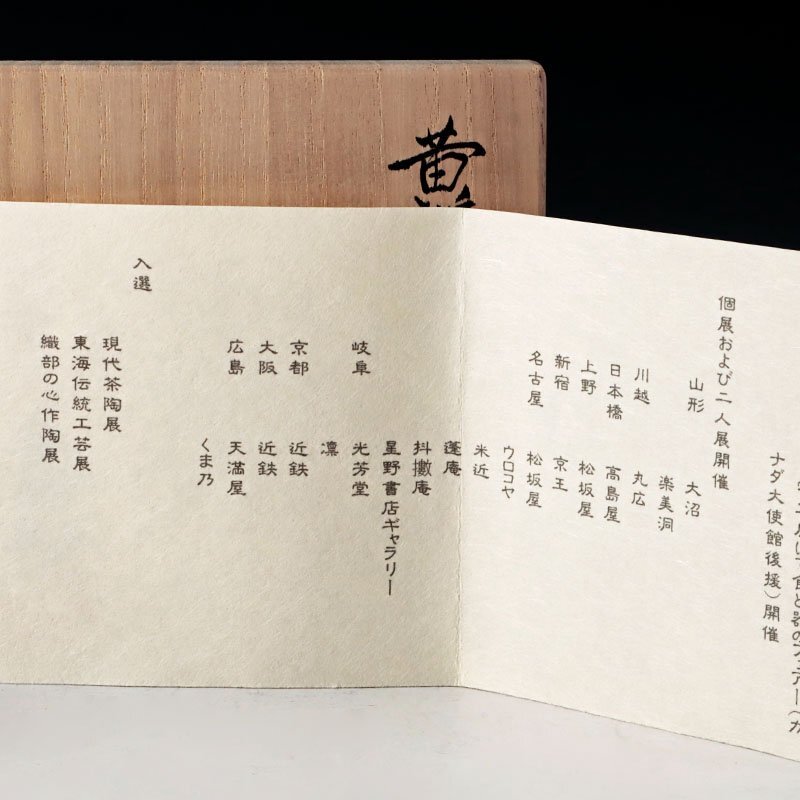 黄
にて食と器のフェアー（カ
ナダ大使館後援）開催
個展および二人展開催
山形 大沼
楽美洞
川越 丸広
日本橋 高島屋
上野 松坂屋
新宿 京王
名古屋 松坂屋
ウロコヤ
米近
蓬庵
抖擻庵
星野書店ギャラリー
岐阜 光芳堂
凛
京都 近鉄
大阪 近鉄
広島 天満屋
くま乃
入選
現代茶陶展
東海伝統工芸展
織部の心作陶展